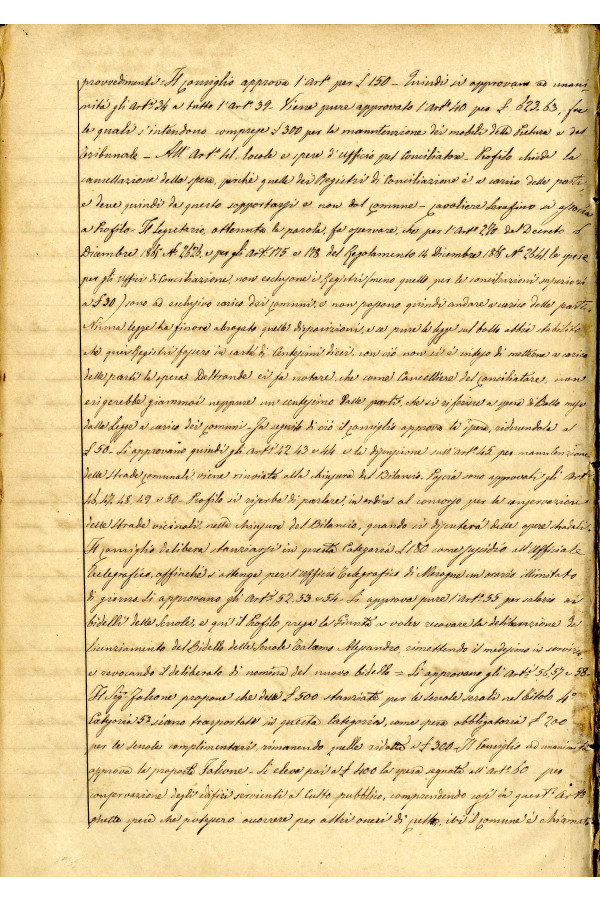 provvedimenti. Il Consiglio approva l'Art.º per £ 150 – Quindi si approvano ad unani-
mità gli Art.i 34 a tutto l'Art.º 39. Viene pure approvato l'Art.º 40 per £ 623.63, fra
le quali s'intendono comprese £ 300 per la manutenzione dei mobili della Pretura e del
Tribunale – All'Art.º 41. locale e spese d'ufficio pel Conciliatore – Profilo chiede la
cancellazione della spesa, perchè quella dei Registri di Conciliazione è a carico delle parti,
e deve quindi da queste sopportarsi e non dal Comune – Cavaliere Serafino si associa
a Profilo – Il Segretario, ottenuta la parola, fa osservare, che per l'Art.º 270 del Decreto 6
Dicembre 1865 Nº 2626, e per gli Art.i 175 e 178 del Regolamento 14 Dicembre 1865 Nº 2641 le spese
per gli Uffici di Conciliazione, non esclusone i Registri (meno quello per le conciliazioni superiori
a £ 30) sono ad esclusivo carico dei Comuni, e non possono quindi andare a carico delle parti.
Niuna legge ha finora abrogato quelle disposizioni, e se pure la legge sul bollo abbia stabilito
che quei Registri fossero in carta di Centesimi dieci, con ciò non si è inteso di metterne a carico
delle parti la spesa. Deltronde ei fa notare, che come Cancelliere del Conciliatore, non
esigerebbe giammai neppure un centesimo dalle parti, che si riferisce a spesa di Bollo messa
dalla Legge a carico dei Comuni – In seguito di ciò il Consiglio approva la spesa, riducendola a
£ 50 – Si approvano quindi gli Art.i 42. 43 e 44 e la discussione sull'Art.º 45 per manutenzione
delle strade Comunali, viene rinviata alla chiusura del Bilancio. Poscia sono approvati gli Art.i
46, 47, 48, 49 e 50 – Profilo si riserba di parlare, in ordine al concorso per la conservazione
delle strade vicinali, nella chiusura del Bilancio, quando si discuterà delle opere stradali.
Il Consiglio delibera stanziarsi in questa Categoria £ 180 come sussidio all'Ufficiale
Telegrafico, affinchè s'ottenga per l'Ufficio Telegrafico di Mesagne un orario illimitato
di giorno. Si approvano gli Art.i 52. 53 e 54 – Si approva pure l'Art.º 55 per salario ai
bidelli delle Scuole, e qui il Profilo prega la Giunta a voler revocare la deliberazione di
licenziamento del Bidello delle Scuole Catamo Alessandro, rimettendo il medesimo in servizio
e revocando il deliberato di nomina del nuovo bidello – Si approvano gli Art.i 56, 57 e 58.
Il Sig.r Falcone propone che delle £ 500 stanziate per le scuole serali nel Titolo 4º
Categoria 5ª siano trasportate in questa Categoria, come spesa obbligatoria £ 200
per le scuole complimentari, rimanendo quelle ridotte a £ 300 – Il Consiglio ad unanimità
approva la proposta Falcone. Si eleva poi a £ 400 la spesa segnata all'Art.º 60 per
conservazione degli edifizi servienti al Culto pubblico, comprendendo così in quest'Art.º
quelle spese che potessero occorrere per altri onesi di culto, ivi il Comune è chiamato